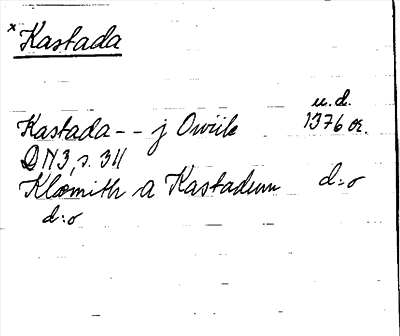 * Kastada
u.d.
Kastada -- j Owiik 1376 or.
DN3, s. 311
Klomith a Kastadum d:o
d:o